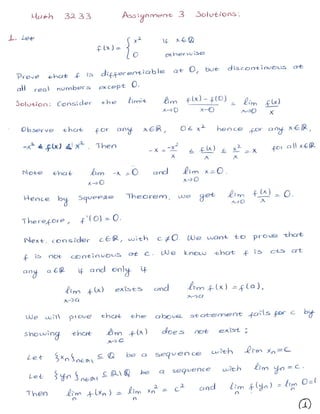 Math 3233 Assignment 3 Solutions.
1. Let
f(x) = { x² if x∈Q
0 otherwise
Prove that f is differentiable at 0, but discontinuous at
all real numbers except 0.
Solution: Consider the limit lim x→0 f(x)-f(0) / x-0 = lim x→0 f(x) / x
Observe that for any x∈R, 0≤x² hence for any x∈R,
-x² ≤ f(x) ≤ x². Then -x = -x²/x ≤ f(x)/x ≤ x²/x = x for all x∈R
Note that lim x→0 -x = 0 and lim x→0 x = 0.
Hence by Squeeze Theorem, we get lim x→0 f(x)/x = 0.
Therefore, f'(0) = 0.
Next, consider c∈R, with c≠0. We want to prove that
f is not continuous at c. We know that f is cts at
any a∈R if and only if
lim x→a f(x) exists and lim x→a f(x) = f(a),
We will prove that the above statement fails for c by
showing that lim x→c f(x) does not exist;
Let {xn}n∈N ⊆ Q be a sequence with lim xn = c
Let {yn}n∈N ⊆ R\Q be a sequence with lim yn = c.
Then lim n f(xn) = lim n xn² = c² and lim n f(yn) = lim n 0 = 0
1